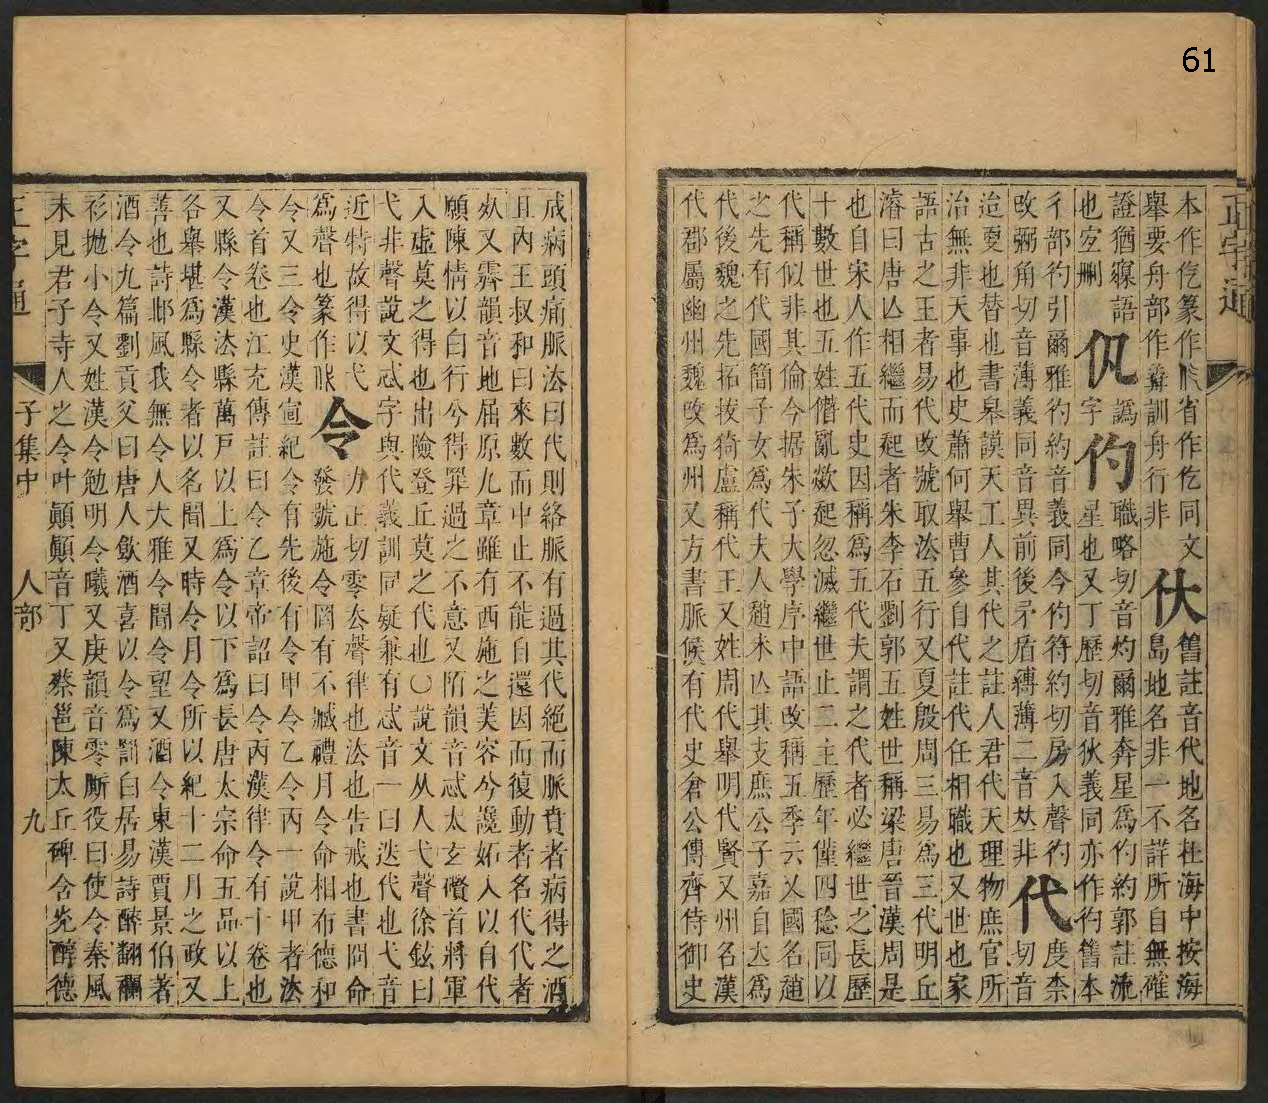 61
正字通
本作仡篆作𠈌省作仡同文
舉要舟部作𦨉訓舟行非
𠇲
舊註音代地名在海中按海
島地名非一不詳所自無確
證猶寱語
也宜刪
㐽
譌
字
仢
職略切音灼爾雅奔星爲仢約郭註流
星也又丁歷切音狄義同亦作彴舊本
彳部彴引爾雅彴約音義同今仢符約切房入聲彴
改弼角切音薄義同音異前後矛盾縛薄二音𠀤非
代
度柰
切音
迨更也替也書皋謨天工人其代之註人君代天理物庶官所
治無非天事也史蕭何舉曹參自代註代任相職也又世也家
語古之王者易代改號取法五行又夏殷周三易爲三代明丘
濬曰唐亾相繼而起者朱李石劉郭五姓世稱梁唐晉漢周是
也自宋人作五代史因稱爲五代夫謂之代者必繼世之長歷
十數世也五姓僭亂歘起忽滅繼世止二主歷年僅四稔同以
代稱似非其倫今据朱子大學序中語改稱五季云又國名趙
之先有代國簡子女爲代夫人趙未亾其支庶公子嘉自立爲
代後魏之先拓拔猗盧稱代王又姓周代舉明代賢又州名漢
代郡屬幽州魏改爲州又方書脈候有代史倉公傳齊侍御史
成病頭痛脈法曰代則絡脈有過其代絕而脈賁者病得之酒
且內王叔和曰來數而中止不能自還因而復動者名代代者
𣢆又霽韻音地屈原九章雖有西施之美容兮讒妬入以自代
願陳情以白行兮得罪過之不意又隋韻音忒太玄礥首將軍
入虛莫之得也出險登丘莫之代也〇說文从人弋聲徐鉉曰
弋非聲說文忒字與代義訓同疑兼有忒音一曰迭代也弋音
近特故得以弋
爲聲也篆作𠈌
令
力正切零去聲律也法也告戒也書冏命
發號施令罔有不臧禮月令命相布德和
令又三令史漢宣紀令有先後有令甲令乙令丙一說甲者法
令首卷也江充傳註曰令乙章帝詔曰令丙漢律令有十卷也
又縣令漢法縣萬戸以上爲令以下爲長唐太宗命五品以上
各舉堪爲縣令者以名聞又時令月令所以紀十二月之政又
善也詩邶風我無令人大雅令聞令望又酒令東漢賈景伯著
酒令九篇劉貢父曰唐人飲酒喜以令爲罰白居易詩醉翻襴
衫拋小令又姓漢令勉明令曦又庚韻音零厮役曰使令秦風
未見君子寺人之令叶顚顚音丁又蔡邕陳太丘碑含光醇德
正字通
子集中
人部
九